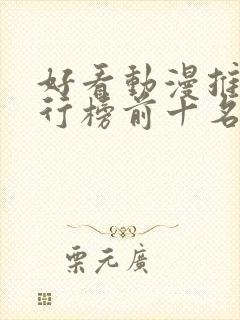 好看動漫推
行榜前十名
栗元廣